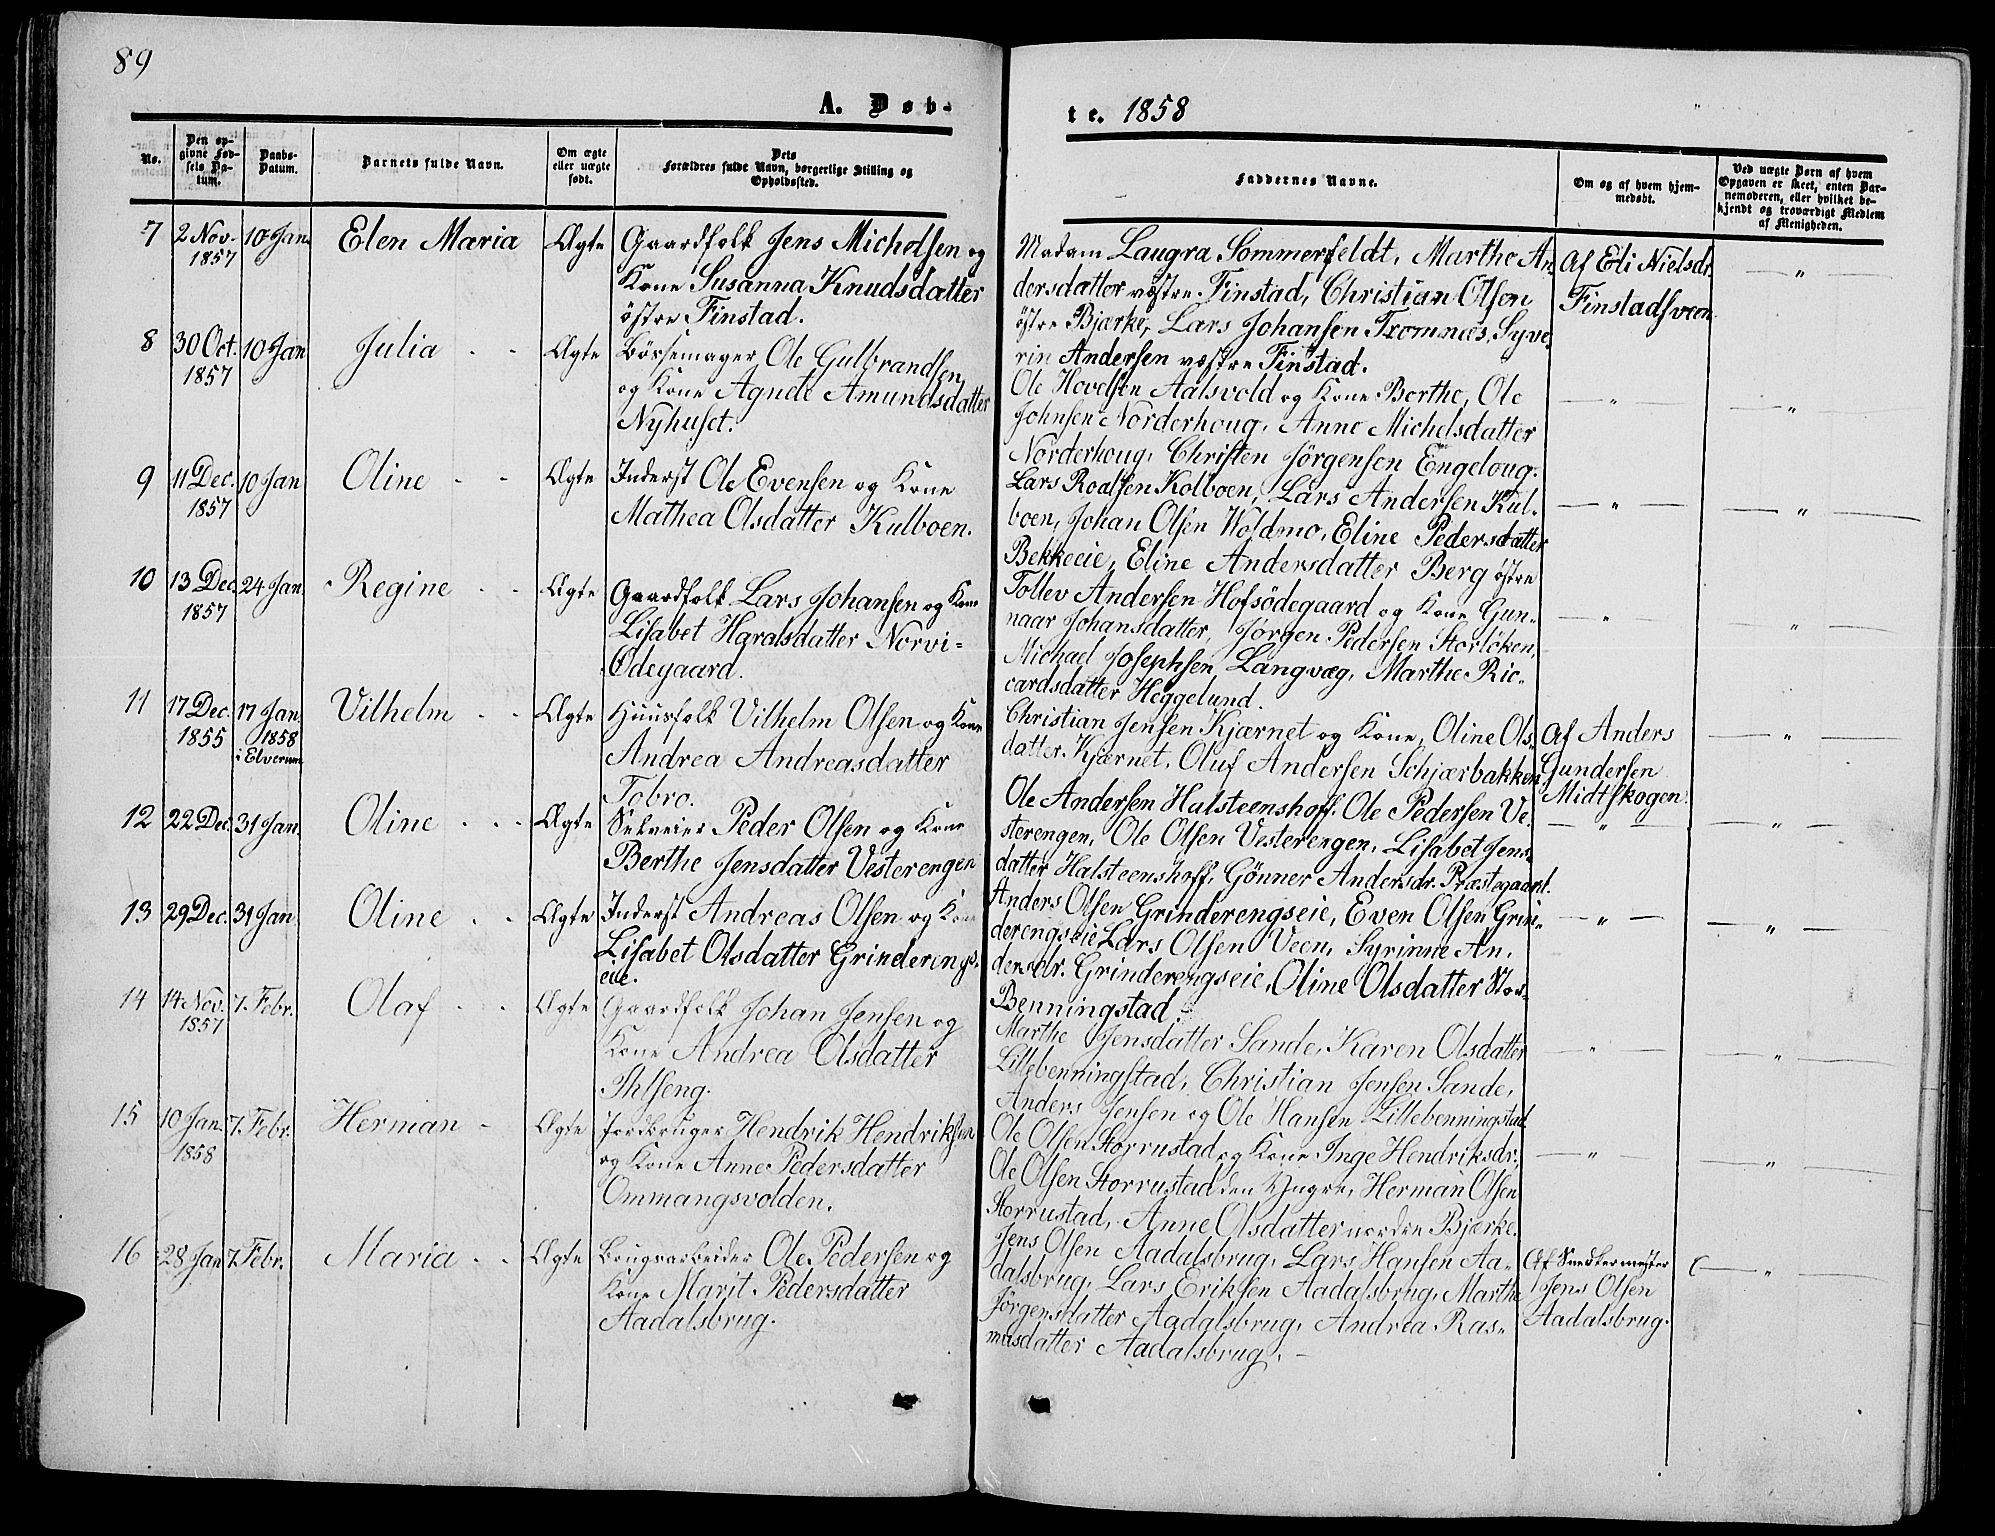 89
A. Døb-
te. 1858
No.
Den op-
givne Fød-
sels Da-
tum.
Daabs-
Datum.
Barnets fulde Navn.
Om ægte
eller uægte
født.
Dets
Forældres fulde Navn, borgerlige Stilling og
Opholdssted.
Faddernes Navne.
Om og af hvem hjem-
medøbt.
Ved uægte Børn af hvem
Opgaven er skeet, enten Bar-
nemoderen, eller hvilket be-
kjendt og troværdigt Medlem
af Menigheden.
7
2 Nov.
1857
10 Jan.
Elen Maria
Ægte
Gaardfolk Jens Michelsen og
Kone Susanna Knudsdatter
östre Finstad.
Madam Laugra Sommerfeldt, Marthe An-
dersdatter væstre Finstad, Christian Olsen
östre Bjærke, Lars Johansen Tromnæs, Syve-
rin Andersen væstre Finstad.
Af Eli Nielsdr.
Finstadsveen
— " —
8
30 Oct.
1857
10 Jan
Julia
Ægte
Börsemager Ole Gulbrandsen
og Kone Agnete Amundsdatter
Nyhuset.
Ole Hovelsen Aalsvold og Kone Berthe, Ole
Johnsen Norderhoug, Anne Michelsdatter
Norderhoug, Christen Jörgensen Engeloug.
— " —
— " —
9
11 Dec.
1857
10 Jan
Oline
Ægte
Inderst Ole Evensen og Kone
Mathea Olsdatter Kulboen.
Lars Roalsen Kolboen, Lars Andersen Kul-
boen, Johan Olsen Woldmo, Eline Pedersdatter
Bekkeeie, Eline Andersdatter Berg östre
— " —
— " —
10
13 Dec.
1857
24 Jan
Regine
Ægte
Gaardfolk Lars Johansen og Kone
Lisabet Haralsdatter Norvi-
Ødegaard.
Tollev Andersen Hofsödegaard og Kone Gun-
naar Johansdatter, Jørgen Pedersen Storløken,
Michael Josephsen Langvæg, Marthe Ric-
cardsdatter Heggelund.
— " —
— " —
11
17 Dec.
1855
17 Jan.
1858
i Elverum
Vilhelm
Ægte
Huusfolk Vilhelm Olsen og Kone
Andrea Andreasdatter
Tobro.
Christian Jensen Kjærnet og Kone, Oline Ols-
datter Kjærnet, Oluf Andersen Schjærbakken,
Af Anders
Gundersen
Midtskogen.
— " —
12
22 Dec.
31 Jan.
Oline
Ægte
Selveier Peder Olsen og Kone
Berthe Jensdatter Vesterengen
Ole Andersen Halsteenshoff, Ole Pedersen Ve-
sterengen, Ole Olsen Vesterengen, Lisabet Jens-
datter Halsteenshoff, Gönner Andersdr. Præstegaard.
— " —
— " —
13
29 Dec.
31 Jan
Oline
Ægte
Inderst Andreas Olsen og Kone
Lisabet Olsdatter Grinderengs-
eie.
Anders Olsen Grinderengseie, Even Olsen Grin-
derengseie Lars Olsen Veen, Syrinne An-
dersdr. Grinderengseie, Oline Olsdatter Stor-
Benningstad.
— " —
— " —
14
14 Nov.
1857
7. Febr.
Olaf
Ægte
Gaardfolk Johan Jensen og
Kone Andrea Olsdatter
Ihlseng.
Marthe Jensdatter Sande, Karen Olsdatter
Lillebenningstad, Christian Jensen Sande,
Anders Jensen og Ole Hansen Lillebenningstad.
— " —
— " —
15
10 Jan.
1858
7. Febr.
Herman
Ægte
Jordbruger Hendrik Hendriksen
og Kone Anne Pedersdatter
Ommangsvolden.
Ole Olsen Storrustad og Kone Inge Hendriksdr.,
Ole Olsen Storrustad den Yngre, Herman Olsen
Storrustad, Anne Olsdatter nordre Bjærke.
— " —
— " —
16
28 Jan
7. Febr.
Maria
Ægte
Brugsarbeider Ole Pedersen og
Kone Marit Pedersdatter
Aadalsbrug.
Jens Olsen Aadalsbrug, Lars Hansen Aa-
dalsbrug, Lars Eriksen Aadalsbrug, Marthe
Jörgensdatter Aadalsbrug, Andrea Ras-
musdatter Aadalsbrug. –
Af Snedkermester
Jens Olsen
Aadalsbrug.
— " —